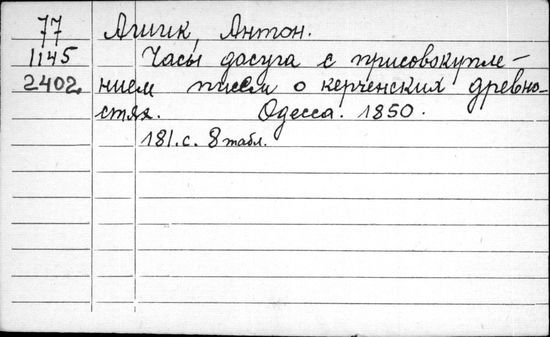 77 Ашик, Антон.
1145 Часы досуга с присовокупле-
2402 нием писем о керченских древно-
стях. Одесса. 1850.
181.с. 8 табл.